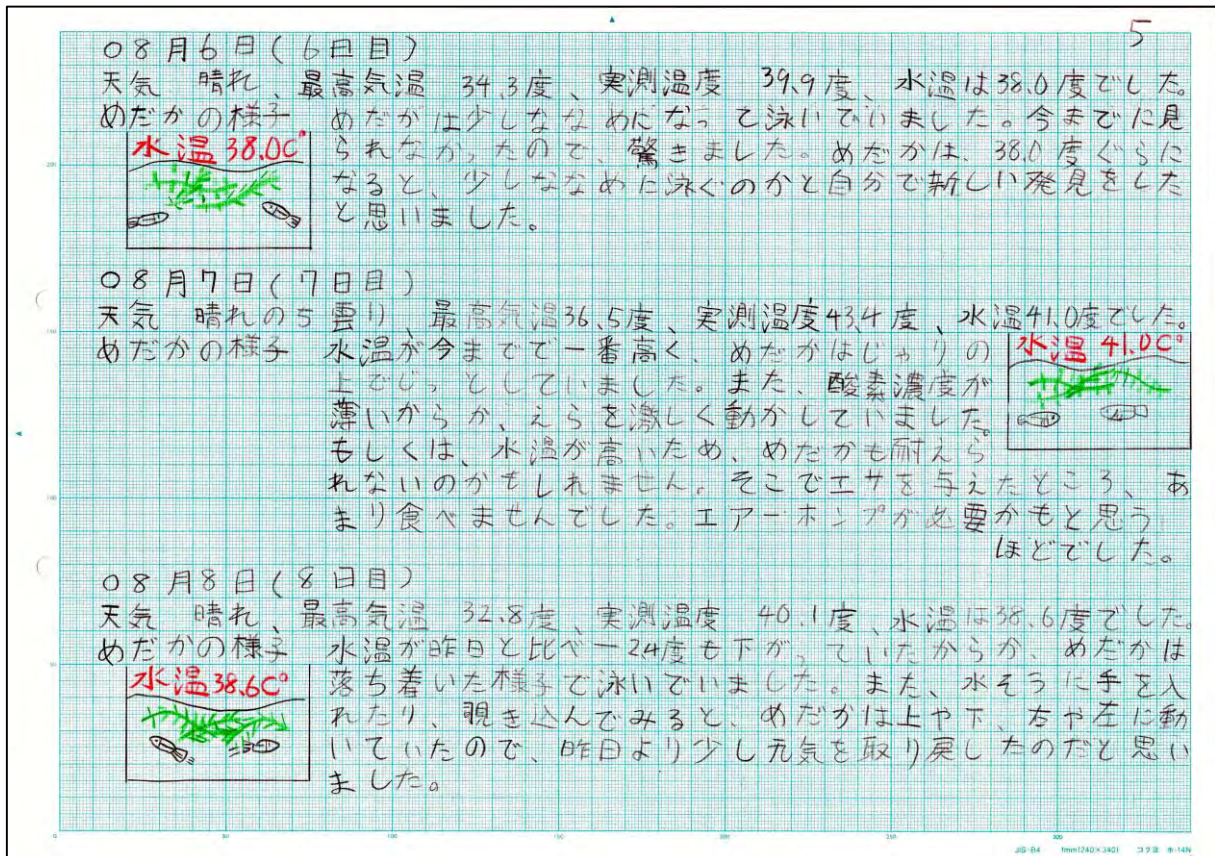 5
○8月6日(6日目)
天気 晴れ、最高気温 34.3度、実測温度 39.9度、水温は38.0度でした。
めだかの様子 めだかは少しななめになって泳いでいました。今までに見
水温38.0C°
られなかったので、驚きました。めだかは、38.0度ぐらに
なると、少しななめに泳ぐのかと自分で新しい発見をした
と思いました。
○8月7日(7日目)
天気 晴れのち雲り、最高気温36.5度、実測温度43.4度、水温41.0度でした。
めだかの様子 水温が今までで一番高く、めだかはじゃりの
水温41.0C°
上でじっとしていました。また、酸素濃度が
薄いからか、えらを激しく動かしていました。
もしくは、水温が高いため、めだかも耐えら
れないのかもしれません。そこでエサを与えたところ、あ
まり食べませんでした。エアーポンプが必要かもと思う
ほどでした。
○8月8日(8日目)
天気 晴れ、最高気温 32.8度、実測温度 40.1度、水温は38.6度でした。
めだかの様子 水温が昨日と比べ-2.4度も下がっていたからか、めだかは
水温38.6C°
落ち着いた様子で泳いでいました。また、水そうに手を入
れたり、覗き込んでみると、めだかは上や下、右や左に動
いていたので、昨日より少し元気を取り戻したのだと思い
ました。
0 50 100 150 200 250 300
JIS-B4 1mm(240×340) コクヨ ホ-14N